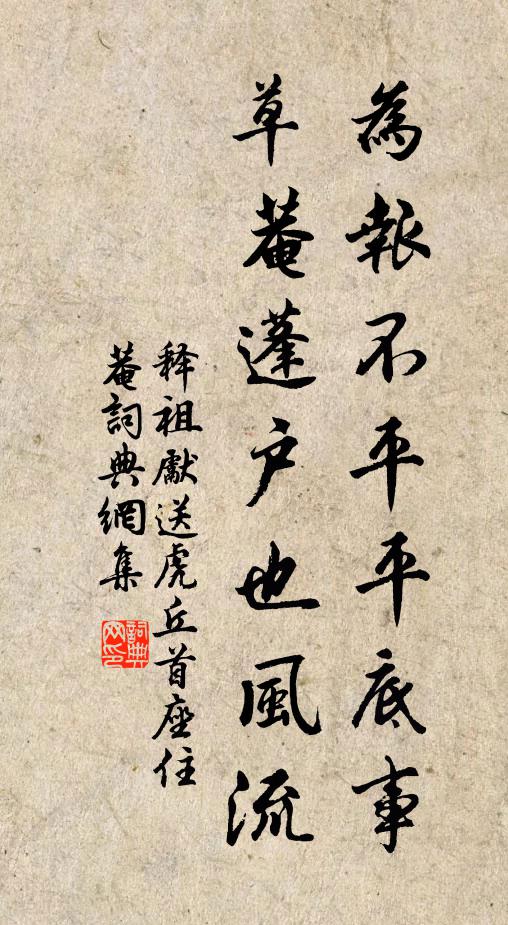 為報不平平底事
草菴蓬户也風流
释祖猷送虎丘首座住
菴詞典網集
詞典网印